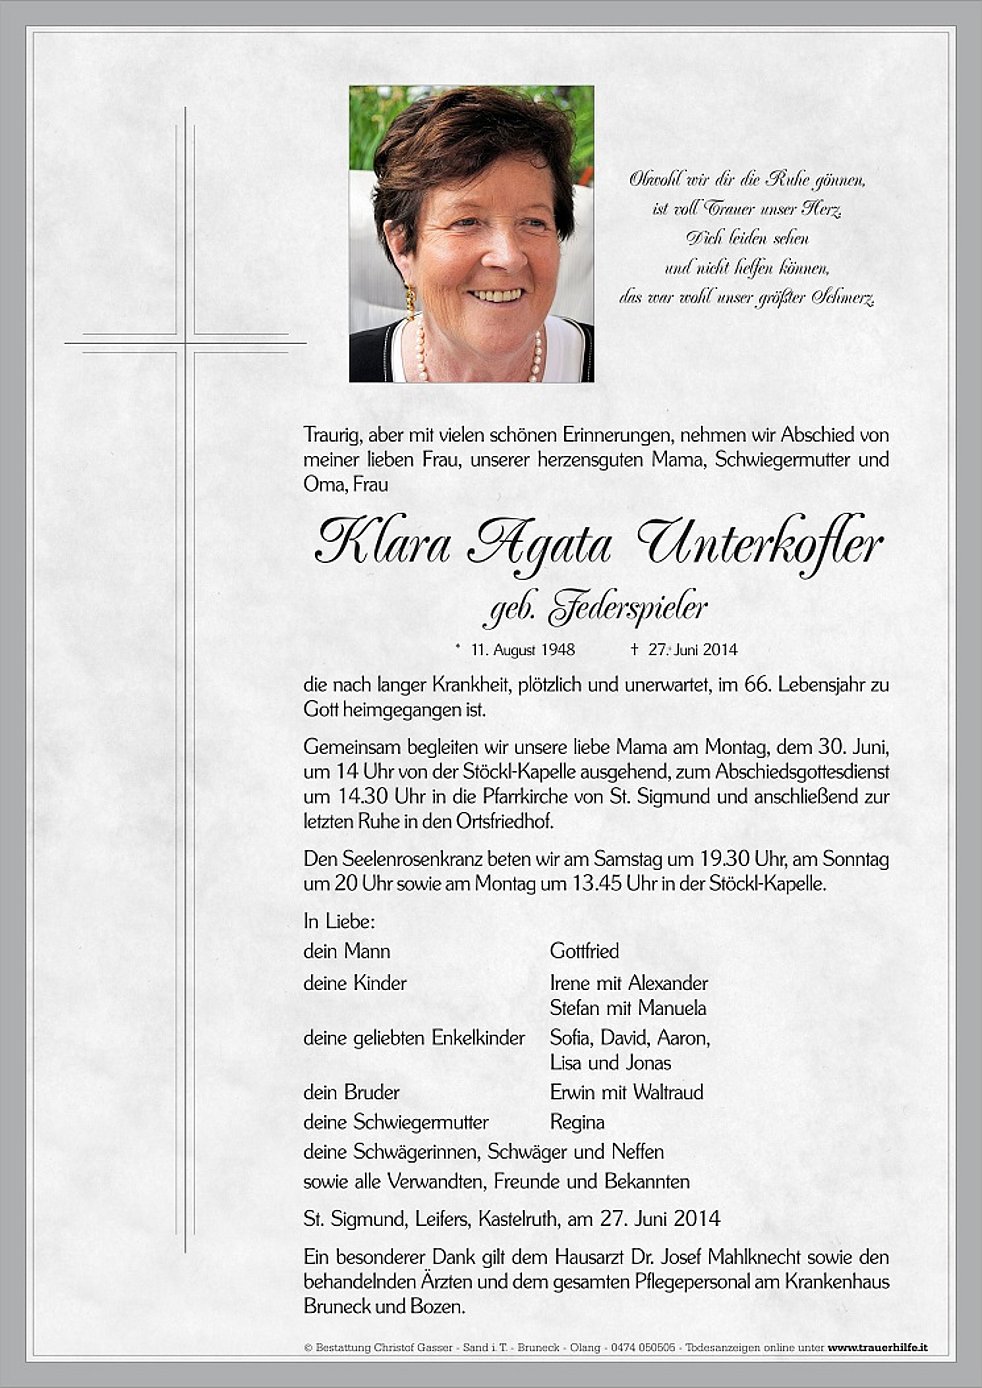 Obwohl wir dir die Ruhe gönnen,
ist voll Trauer unser Herz.
Dich leiden sehen
und nicht helfen können,
das war wohl unser größter Schmerz.
Traurig, aber mit vielen schönen Erinnerungen, nehmen wir Abschied von
meiner lieben Frau, unserer herzensguten Mama, Schwiegermutter und
Oma, Frau
Klara Agata Unterkofler
geb. Federspieler
* 11. August 1948 † 27. Juni 2014
die nach langer Krankheit, plötzlich und unerwartet, im 66. Lebensjahr zu
Gott heimgegangen ist.
Gemeinsam begleiten wir unsere liebe Mama am Montag, dem 30. Juni,
um 14 Uhr von der Stöckl-Kapelle ausgehend, zum Abschiedsgottesdienst
um 14.30 Uhr in die Pfarrkirche von St. Sigmund und anschließend zur
letzten Ruhe in den Ortsfriedhof.
Den Seelenrosenkranz beten wir am Samstag um 19.30 Uhr, am Sonntag
um 20 Uhr sowie am Montag um 13.45 Uhr in der Stöckl-Kapelle.
In Liebe:
dein Mann Gottfried
deine Kinder Irene mit Alexander
Stefan mit Manuela
deine geliebten Enkelkinder Sofia, David, Aaron,
Lisa und Jonas
dein Bruder Erwin mit Waltraud
deine Schwiegermutter Regina
deine Schwägerinnen, Schwäger und Neffen
sowie alle Verwandten, Freunde und Bekannten
St. Sigmund, Leifers, Kastelruth, am 27. Juni 2014
Ein besonderer Dank gilt dem Hausarzt Dr. Josef Mahlknecht sowie den
behandelnden Ärzten und dem gesamten Pflegepersonal am Krankenhaus
Bruneck und Bozen.
© Bestattung Christof Gasser - Sand i. T. - Bruneck - Olang - 0474 050505 - Todesanzeigen online unter www.trauerhilfe.it